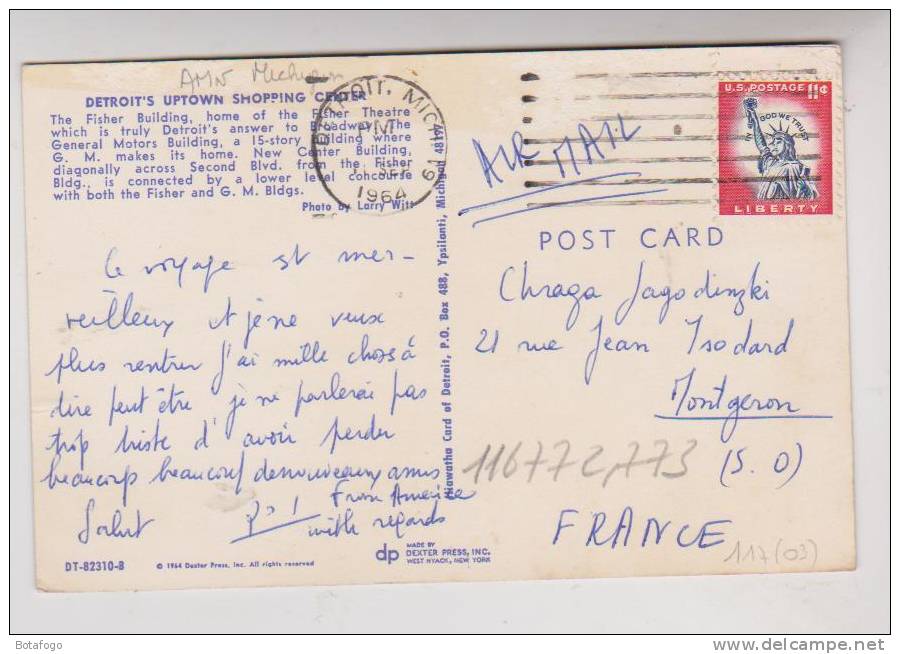 AMN Michigan
DETROIT'S UPTOWN SHOPPING CENTER
The Fisher Building, home of the Fisher Theatre
which is truly Detroit's answer to Broadway. The
General Motors Building, a 15-story building where
G. M. makes its home. New Center Building,
diagonally across Second Blvd. from the Fisher
Bldg., is connected by a lower level concourse
with both the Fisher and G. M. Bldgs.
Photo by Larry Witt
DETROIT, MICH
PM
SEP
1964
AIR MAIL
U.S. POSTAGE 11¢
IN GOD WE TRUST
LIBERTY
POST CARD
Ce voyage est mer-
veilleux et je ne veux
plus rentrer j'ai mille choses à
dire peut être je ne parlerai pas
trop triste d'avoir perdu
beaucoup beaucoup de nouveaux amis
Salut
From America
with regards
Hiawatha Card of Detroit, P.O. Box 488, Ypsilanti, Michigan 48197
Chraga Jagodinzki
21 rue Jean Isodard
Montgeron
(S. O)
FRANCE
116772,773
117(03)
dp MADE BY
DEXTER PRESS, INC.
WEST NYACK, NEW YORK
DT-82310-B
© 1964 Dexter Press, Inc. All rights reserved
Botafogo
www.delcampe.net